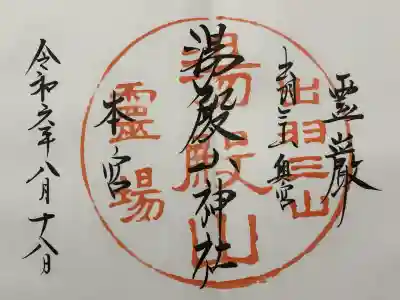 霊巌
出羽三山奥宮
湯殿山神社
本宮
令和六年八月十八日
出羽三山
湯殿山
霊場